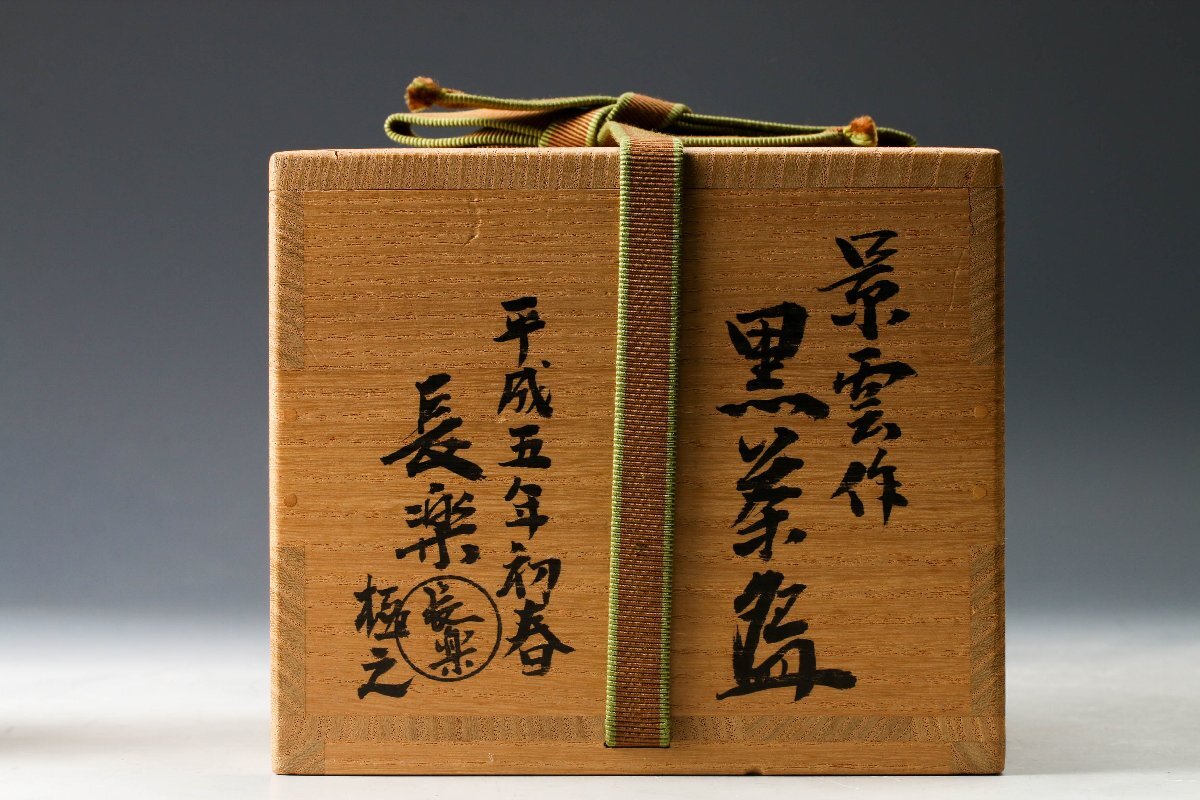 景雲作
黒茶盌
平成五年初春
長楽
長楽
極之